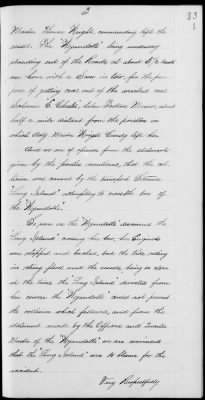 2
33
Master Thomas Wright, commanding left the
vessel. The "Wyandotte" being underway
standing out of the Roads at about 5 1/2 knots
an hour with a Scow in tow, for the pur-
pose of getting coal out of the wrecked
Schooner "E.
half a mile distant from the position in
which Actg Master Wright
And we are of opinion from the statements
given by the parties mentioned, that the col-
lision was caused by the transport Steamer
"Long Island" attempting to cross the bow of
the "Wyandotte".
So soon as the "Wyandotte" discovered the
"Long Island" crossing her bow, her Engines
was stopped and backed, but the tide setting
in strong flood and the vessels being so close
at the time the "Long Island" deviated from
her course the "Wyandotte" could not prevent
the collision which followed, and from the
statement made by the Officers and
of the "Wyandotte" we are convinced
that the "Long Island" was to blame for the
accident.
Very Respectfully